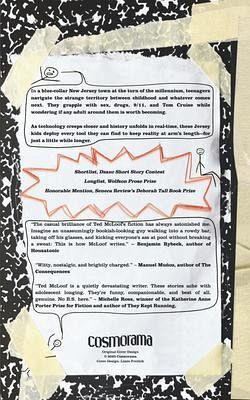 In a blue-collar New Jersey town at the turn of the millennium, teenagers
navigate the strange territory between childhood and whatever comes
next. They grapple with sex, drugs, 9/11, and Tom Cruise while
wondering if any adult around them is worth becoming.
As technology creeps closer and history unfolds in real-time, these Jersey
kids deploy every tool they can find to keep reality at arm's length—for
just a little while longer.
Shortlist, Dzanc Short Story Contest
Longlist, Wolfson Prose Prize
Honorable Mention, Seneca Review's Deborah Tall Book Prize
"The casual brilliance of Ted McLoof's fiction has always astonished me.
Imagine an unassumingly bookish-looking guy walking into a rowdy bar,
taking off his glasses, and kicking everyone's ass at pool without breaking
a sweat: This is how McLoof writes." – Benjamin Rybeck, author of
"Witty, nostalgic, and brightly charged." – Manuel Muñoz, author of The
Consequences
"Ted McLoof is a quietly devastating writer. These stories ache with
adolescent longing. They're funny, compassionate, and best of all,
genuine. No B.S. here." – Michelle Ross, winner of the Katherine Anne
Porter Prize for Fiction and author of They Kept Running.
COSMORAMA
Original Cover Design
© 2025 Cosmorama
Cover Design: Lizzie